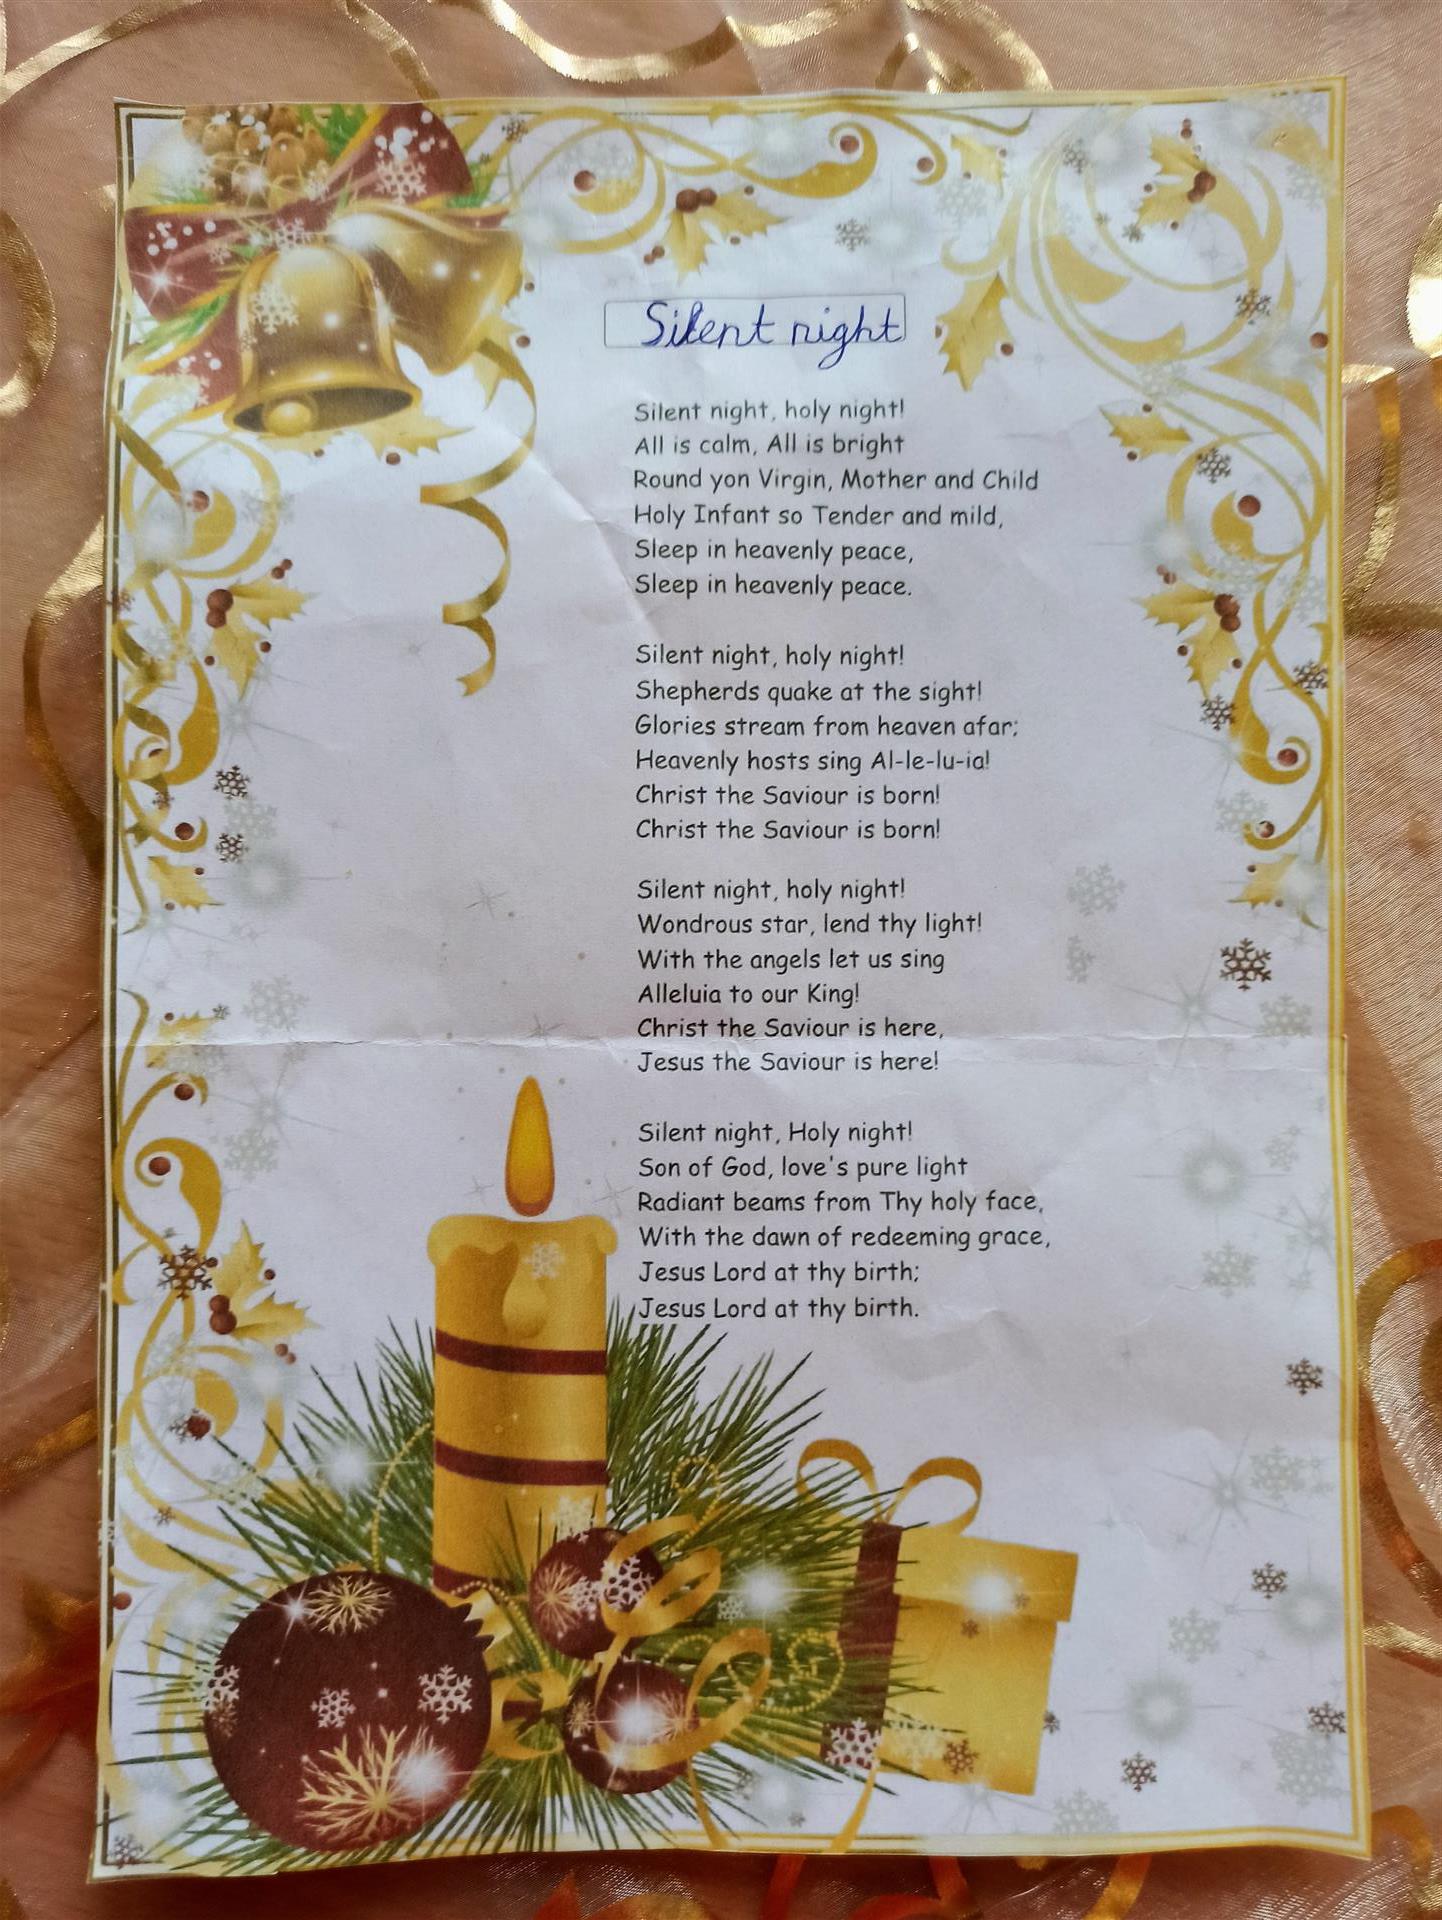 Silent night
Silent night, holy night!
All is calm, All is bright
Round yon Virgin, Mother and Child
Holy Infant so Tender and mild,
Sleep in heavenly peace,
Sleep in heavenly peace.
Silent night, holy night!
Shepherds quake at the sight!
Glories stream from heaven afar;
Heavenly hosts sing Al-le-lu-ia!
Christ the Saviour is born!
Christ the Saviour is born!
Silent night, holy night!
Wondrous star, lend thy light!
With the angels let us sing
Alleluia to our King!
Christ the Saviour is here,
Jesus the Saviour is here!
Silent night, Holy night!
Son of God, love's pure light
Radiant beams from Thy holy face,
With the dawn of redeeming grace,
Jesus Lord at thy birth;
Jesus Lord at thy birth.